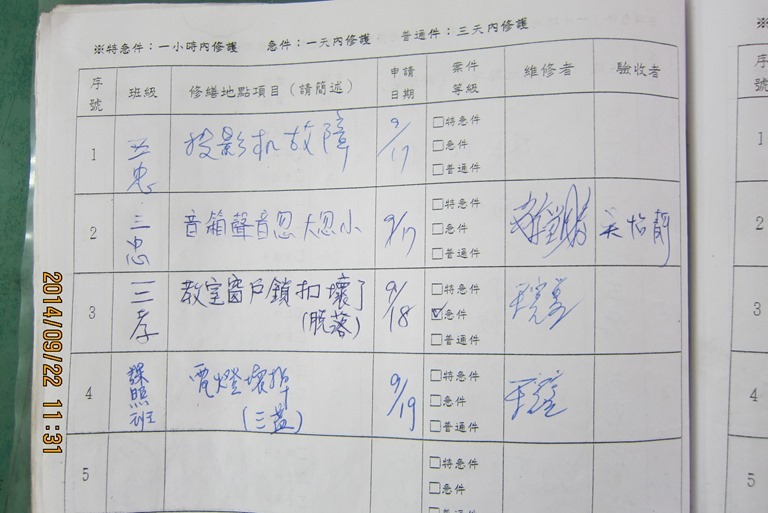 ※特急件：一小時內修護 急件：一天內修護 普通件：三天內修護
序號 班級 修繕地點項目（請簡述） 申請日期 案件等級 維修者 驗收者
1 五忠 投影机故障 9/17 □特急件 □急件 □普通件
2 三忠 音箱聲音忽大忽小 9/17 □特急件 □急件 □普通件
3 三孝 教室窗戶鎖扣壞了(脫落) 9/18 □特急件 ☑急件 □普通件
4 課照班 電燈壞掉(三盞) 9/19 □特急件 □急件 □普通件
5 □特急件 □急件
2014/09/22 11:31